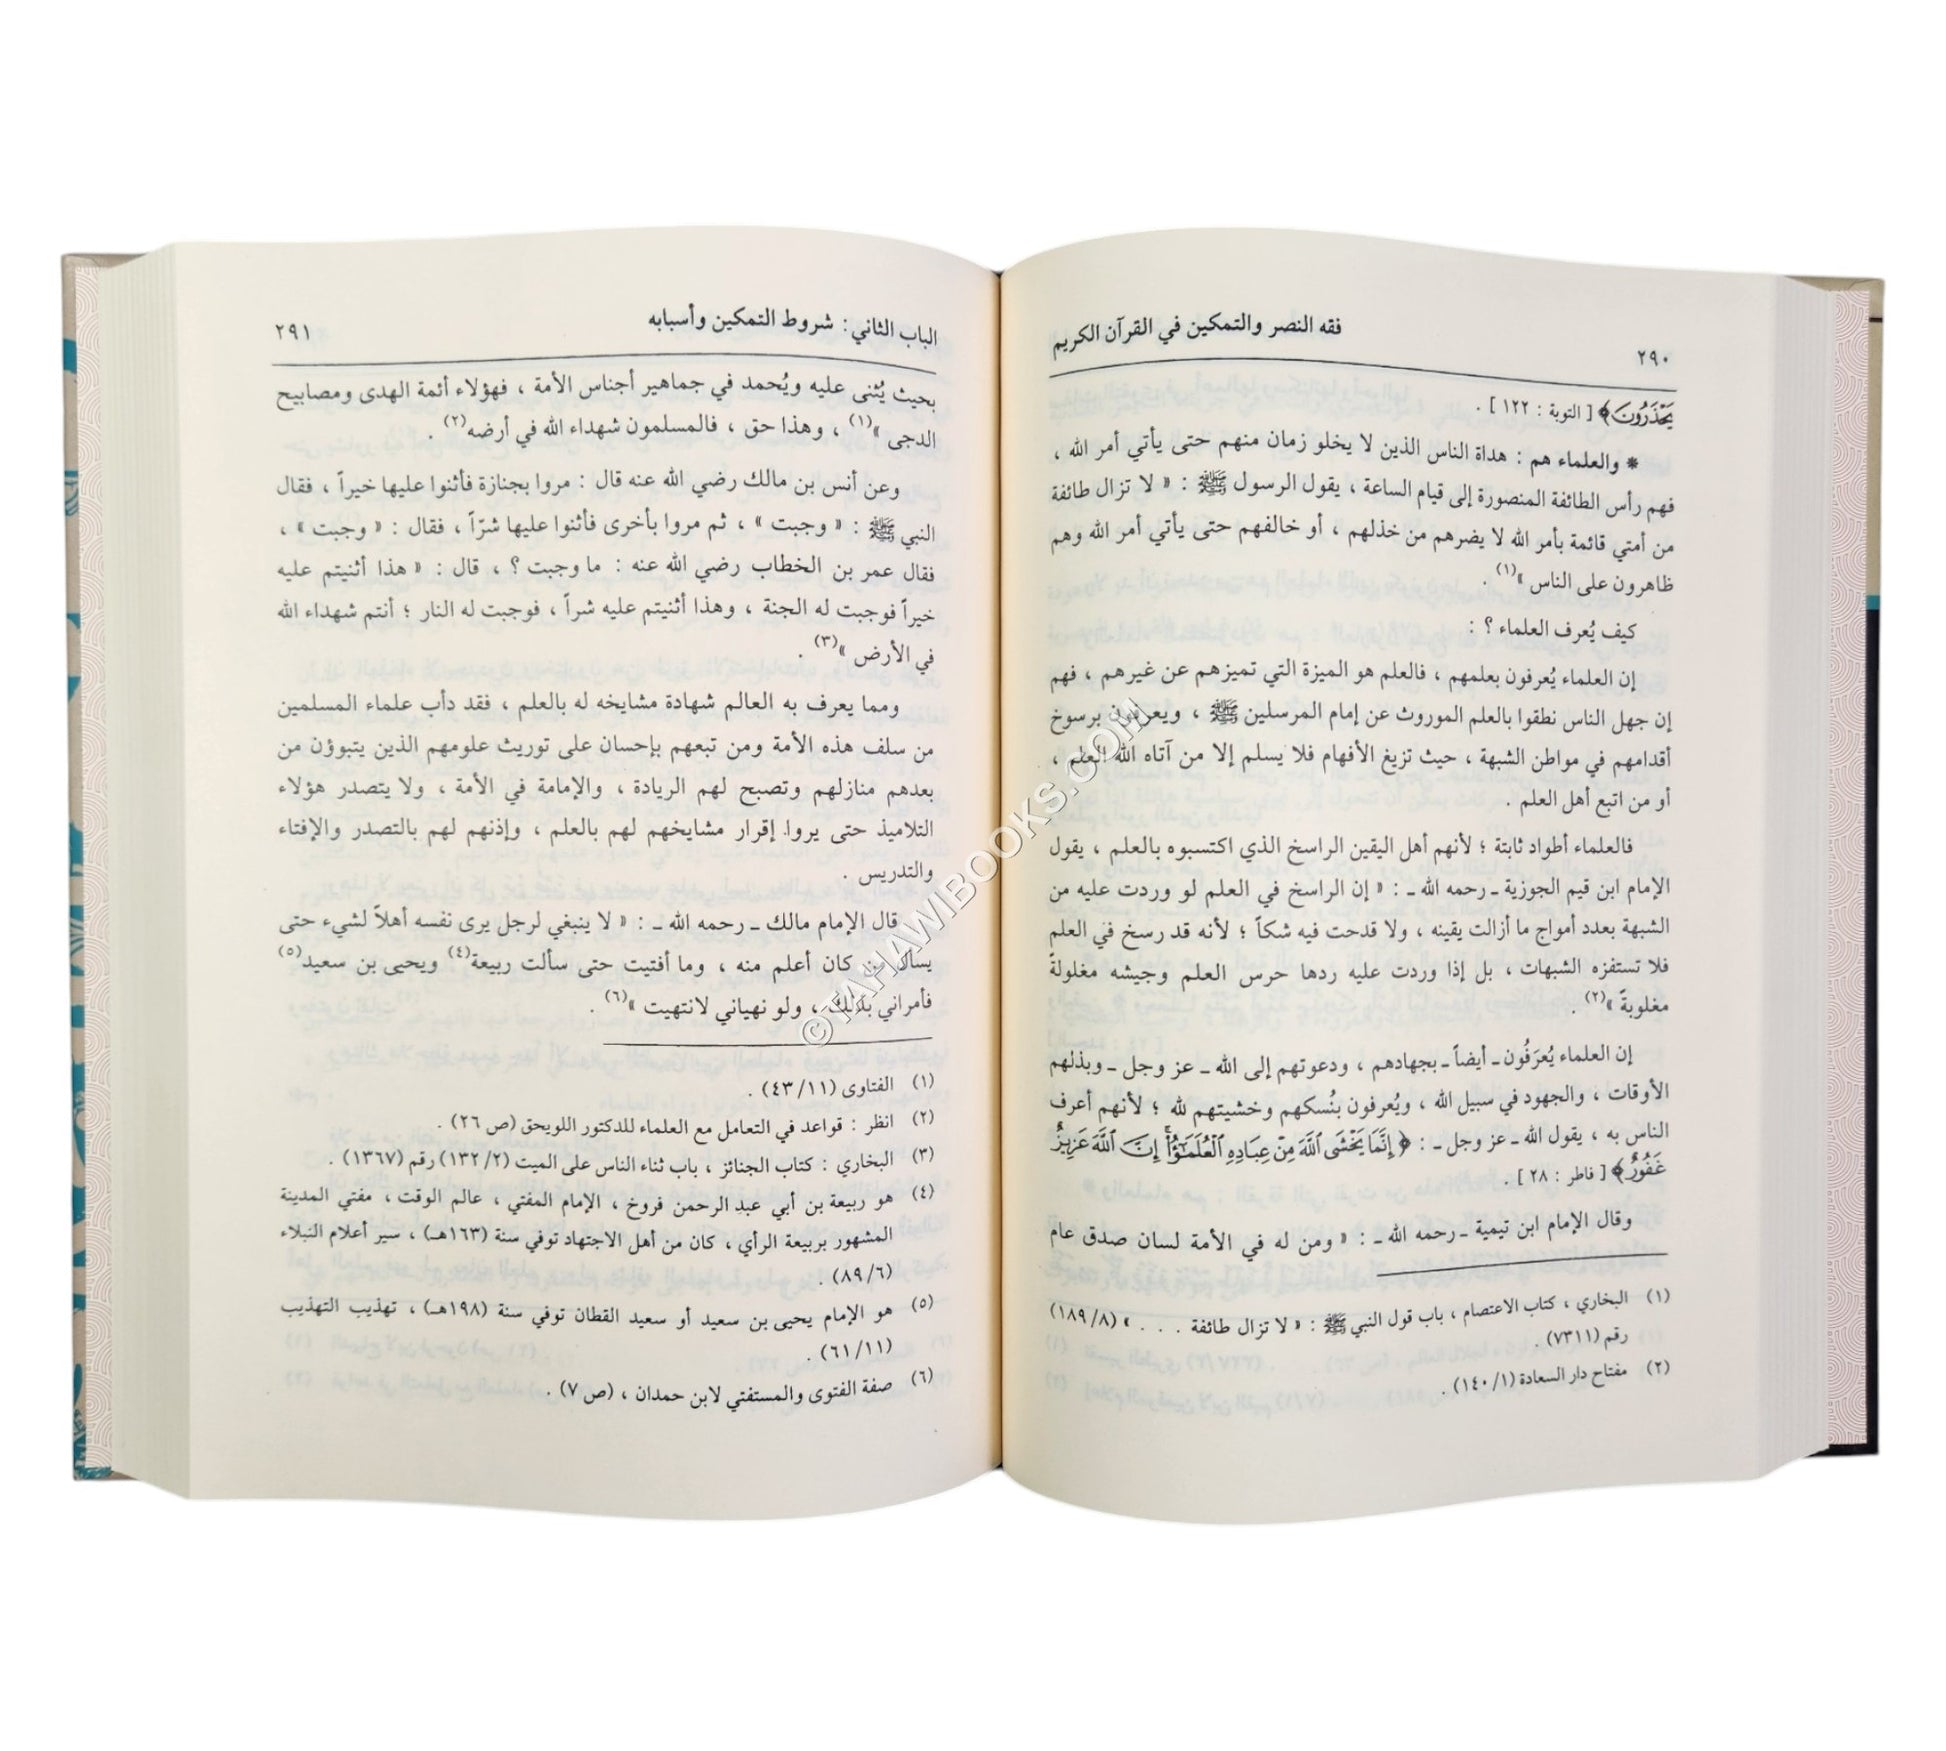 فقه النصر والتمكين في القرآن الكريم
٢٩٠
يَحْذَرُونَ﴾ [ التوبة : ١٢٢ ] .
* والعلماء هم : هداة الناس الذين لا يخلو زمان منهم حتى يأتي أمر الله ،
فهم رأس الطائفة المنصورة إلى قيام الساعة ، يقول الرسول ﷺ : « لا تزال طائفة
من أمتي قائمة بأمر الله لا يضرهم من خذلهم ، أو خالفهم حتى يأتي أمر الله وهم
ظاهرون على الناس »(١) .
كيف يُعرف العلماء ؟ :
إن العلماء يُعرفون بعلمهم ، فالعلم هو الميزة التي تميزهم عن غيرهم ، فهم
إن جهل الناس نطقوا بالعلم الموروث عن إمام المرسلين ﷺ ، ويعرفون برسوخ
أقدامهم في مواطن الشبهة ، حيث تزيغ الأفهام فلا يسلم إلا من آتاه الله العلم ،
أو من اتبع أهل العلم .
فالعلماء أطواد ثابتة ؛ لأنهم أهل اليقين الراسخ الذي اكتسبوه بالعلم ، يقول
الإمام ابن قيم الجوزية ـ رحمه الله ـ : « إن الراسخ في العلم لو وردت عليه من
الشبهة بعدد أمواج ما أزالت يقينه ، ولا قدحت فيه شكاً ؛ لأنه قد رسخ في العلم
فلا تستفزه الشبهات ، بل إذا وردت عليه ردها حرس العلم وجيشه مغلولةً
مغلوبةً »(٢) .
إن العلماء يُعرَفُون ـ أيضاً ـ بجهادهم ، ودعوتهم إلى الله ـ عز وجل ـ وبذلهم
الأوقات ، والجهود في سبيل الله ، ويُعرفون بنُسكهم وخشيتهم لله ؛ لأنهم أعرف
الناس به ، يقول الله ـ عز وجل ـ : ﴿ إِنَّمَا يَخْشَى ٱللَّهَ مِنْ عِبَادِهِ ٱلْعُلَمَٰٓؤُا۟ إِنَّ ٱللَّهَ عَزِيزٌ
غَفُورٌ﴾ [ فاطر : ٢٨ ] .
وقال الإمام ابن تيمية ـ رحمه الله ـ : « ومن له في الأمة لسان صدق عام
(١) البخاري ، كتاب الاعتصام ، باب قول النبي ﷺ : « لا تزال طائفة . . . » (١٨٩/٨)
رقم (٧٣١١) .
(٢) مفتاح دار السعادة (١٤٠/١) .
الباب الثاني : شروط التمكين وأسبابه
٢٩١
بحيث يُثنى عليه ويُحمد في جماهير أجناس الأمة ، فهؤلاء أئمة الهدى ومصابيح
الدجى »(١) ، وهذا حق ، فالمسلمون شهداء الله في أرضه(٢) .
وعن أنس بن مالك رضي الله عنه قال : مروا بجنازة فأثنوا عليها خيراً ، فقال
النبي ﷺ : « وجبت » ، ثم مروا بأخرى فأثنوا عليها شرّاً ، فقال : « وجبت » ،
فقال عمر بن الخطاب رضي الله عنه : ما وجبت ؟ ، قال : « هذا أثنيتم عليه
خيراً فوجبت له الجنة ، وهذا أثنيتم عليه شراً ، فوجبت له النار ؛ أنتم شهداء الله
في الأرض »(٣) .
ومما يعرف به العالم شهادة مشايخه له بالعلم ، فقد دأب علماء المسلمين
من سلف هذه الأمة ومن تبعهم بإحسان على توريث علومهم الذين يتبوؤن من
بعدهم منازلهم وتصبح لهم الريادة ، والإمامة في الأمة ، ولا يتصدر هؤلاء
التلاميذ حتى يروا إقرار مشايخهم لهم بالعلم ، وإذنهم لهم بالتصدر والإفتاء
والتدريس .
قال الإمام مالك ـ رحمه الله ـ : « لا ينبغي لرجل يرى نفسه أهلاً لشيء حتى
يسأل من كان أعلم منه ، وما أفتيت حتى سألت ربيعة(٤) ويحيى بن سعيد(٥)
فأمراني بذلك ، ولو نهياني لانتهيت »(٦) .
(١) الفتاوى (٤٣/١١) .
(٢) انظر : قواعد في التعامل مع العلماء للدكتور اللويحق (ص ٢٦) .
(٣) البخاري : كتاب الجنائز ، باب ثناء الناس على الميت (١٣٢/٢) رقم (١٣٦٧) .
(٤) هو ربيعة بن أبي عبد الرحمن فروخ ، الإمام المفتي ، عالم الوقت ، مفتي المدينة
المشهور بربيعة الرأي ، كان من أهل الاجتهاد توفي سنة (١٦٣هـ) ، سير أعلام النبلاء
(٨٩/٦) .
(٥) هو الإمام يحيى بن سعيد أو سعيد القطان توفي سنة (١٩٨هـ) ، تهذيب التهذيب
(٦١/١١) .
(٦) صفة الفتوى والمستفتي لابن حمدان ، (ص ٧) .
©TAHAWIBOOKS.COM